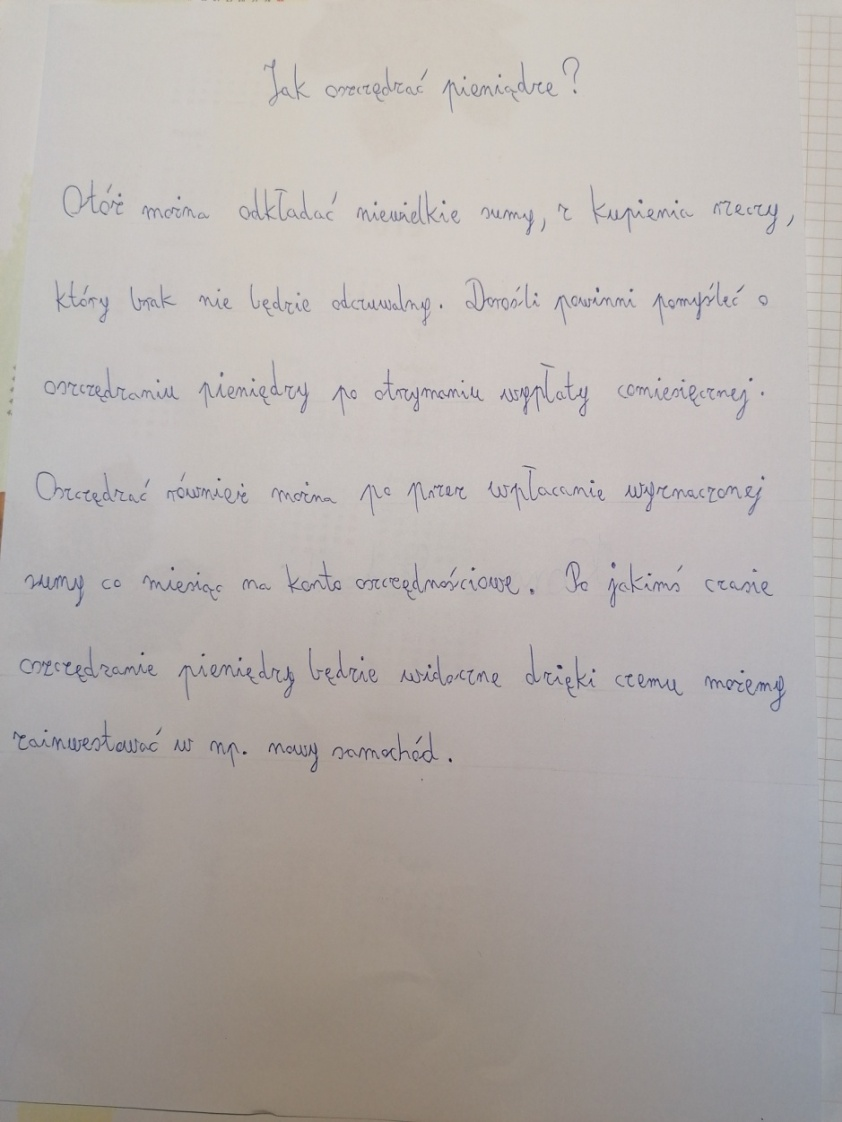 Jak oszczędzać pieniądze?
Otóż można odkładać niewielkie sumy, z kupienia rzeczy,
który brak nie będzie odczuwalny. Dorośli powinni pomyśleć o
oszczędzaniu pieniędzy po otrzymaniu wypłaty comiesięcznej.
Oszczędzać również można po przez wpłacanie wyznaczonej
sumy co miesiąc na konto oszczędnościowe. Po jakimś czasie
oszczędzanie pieniędzy będzie widoczne dzięki czemu możemy
zainwestować w np. nowy samochód.